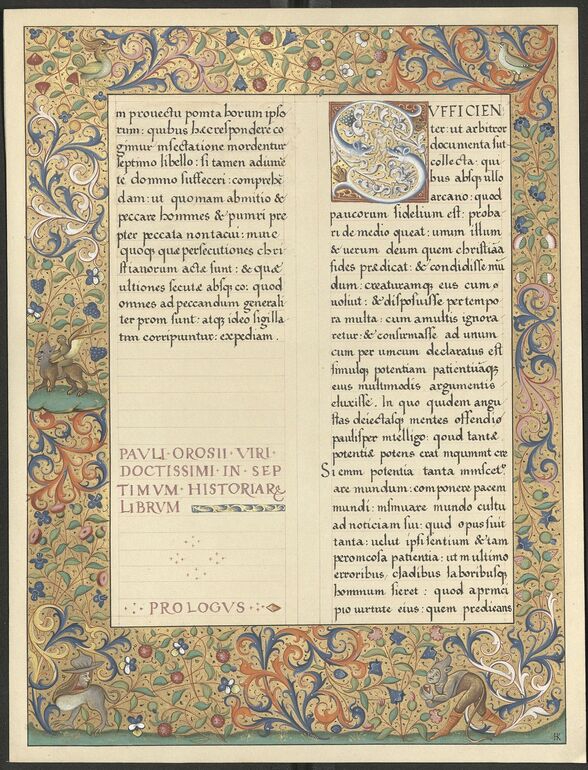 m prouectu pomta horum ipso
rum: quibus hec respondere co
gimur insectatione mordentur
septimo libello: si tamen adiume
te domino suffeceri: comprehē
dam: ut quomam abmitio &
peccare hommes & pumri pre
pter peccata nontacui: nunc
quoq; que persecutiones chri
stianorum actæ sunt: & quæ
ultiones secutæ absq; co: quod
omnes ad peccandum generali
ter prom sunt: atq; ideo sigilla
tim corripuntur: expediam.
PAVLI·OROSII·VIRI·
DOCTISSIMI·IN·SEP
TIMVM·HISTORIAR&
LIBRVM
·PROLOGVS·
SVFFICIEN
ter: ut arbitror
documenta sut
collecta: qui
bus absq; ullo
arcano: quod
paucorum fidelium est: proba
ri de medio queat: unum illum
& uerum deum quem christiāa
fides prædicat: & condidisse mū
dum: creaturamq; eius cum
uoluit: & disposuisse per tempo
ra multa: cum amultis ignora
retur: & confirmasse ad unum
cum per unicum declaratus est
simulq; potentiam patientiāq;
eius multimodis argumentis
eluxisse. In quo quidem angu
stas deiectasq; mentes offendio
paulisper intelligo: quod tantæ
potentiæ potens erat
Si enim potentia tanta
are mundum: componere pacem
mundi: insinuare mundo cultū
ad noticiam sui: quid opus fuit
tanta: uelut ipsi sentium & tam
perniciosa patientia: ut m ultimo
erroribus, cladibus laboribusq;
hommum fieret: quod aprinci
pio uirtute eius: quem predicans
HK